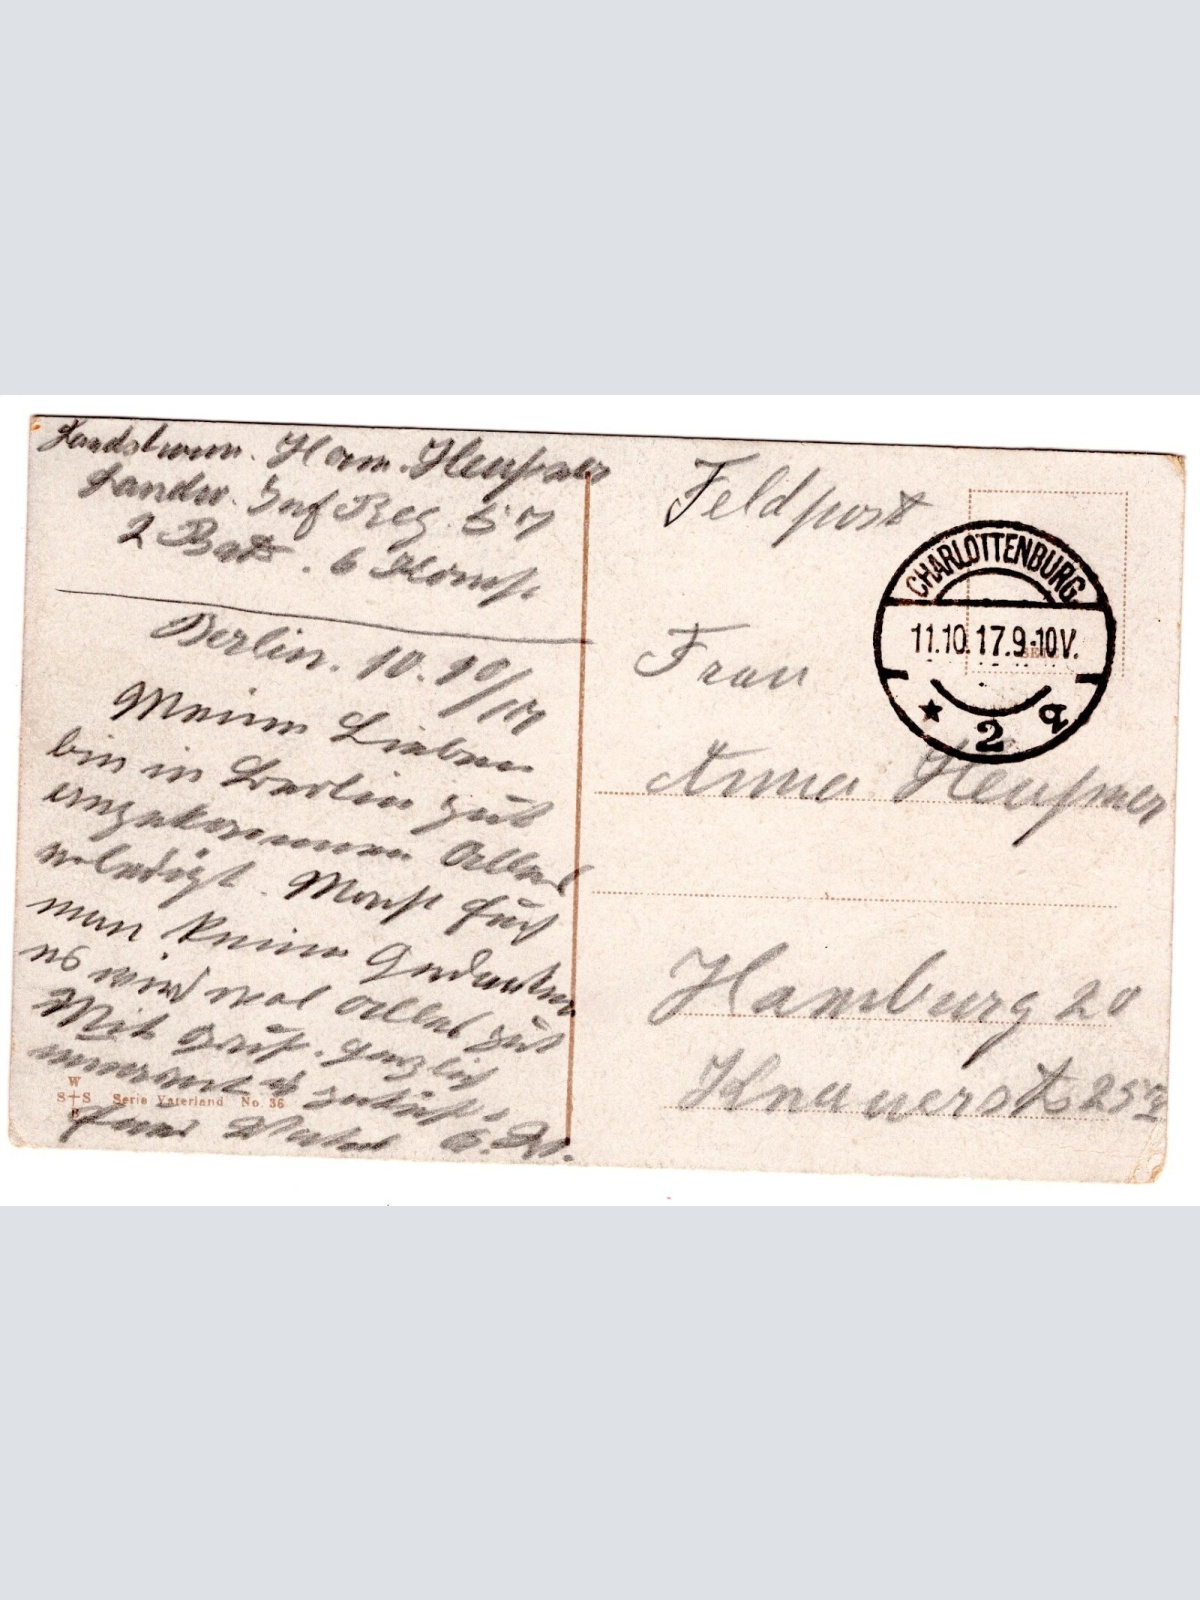 Landsturm. Herm. Heußner
Landw. Inf Reg. 57
2 Bat. 6 Komp.
Berlin. 10.10/17
Meine Lieben
bin in Berlin gut
angekommen Alles
erledigt. Macht Euch
man keine Gedanken
es wird wol Alles gut
Mit Gruß. herzlich
Euer
W
S+S
B
Serie Vaterland No. 36
Feldpost
CHARLOTTENBURG
11.10.17.9-10V.
* 2 q
Frau
Anna Heußner
Hamburg 20
Knauerstr 25